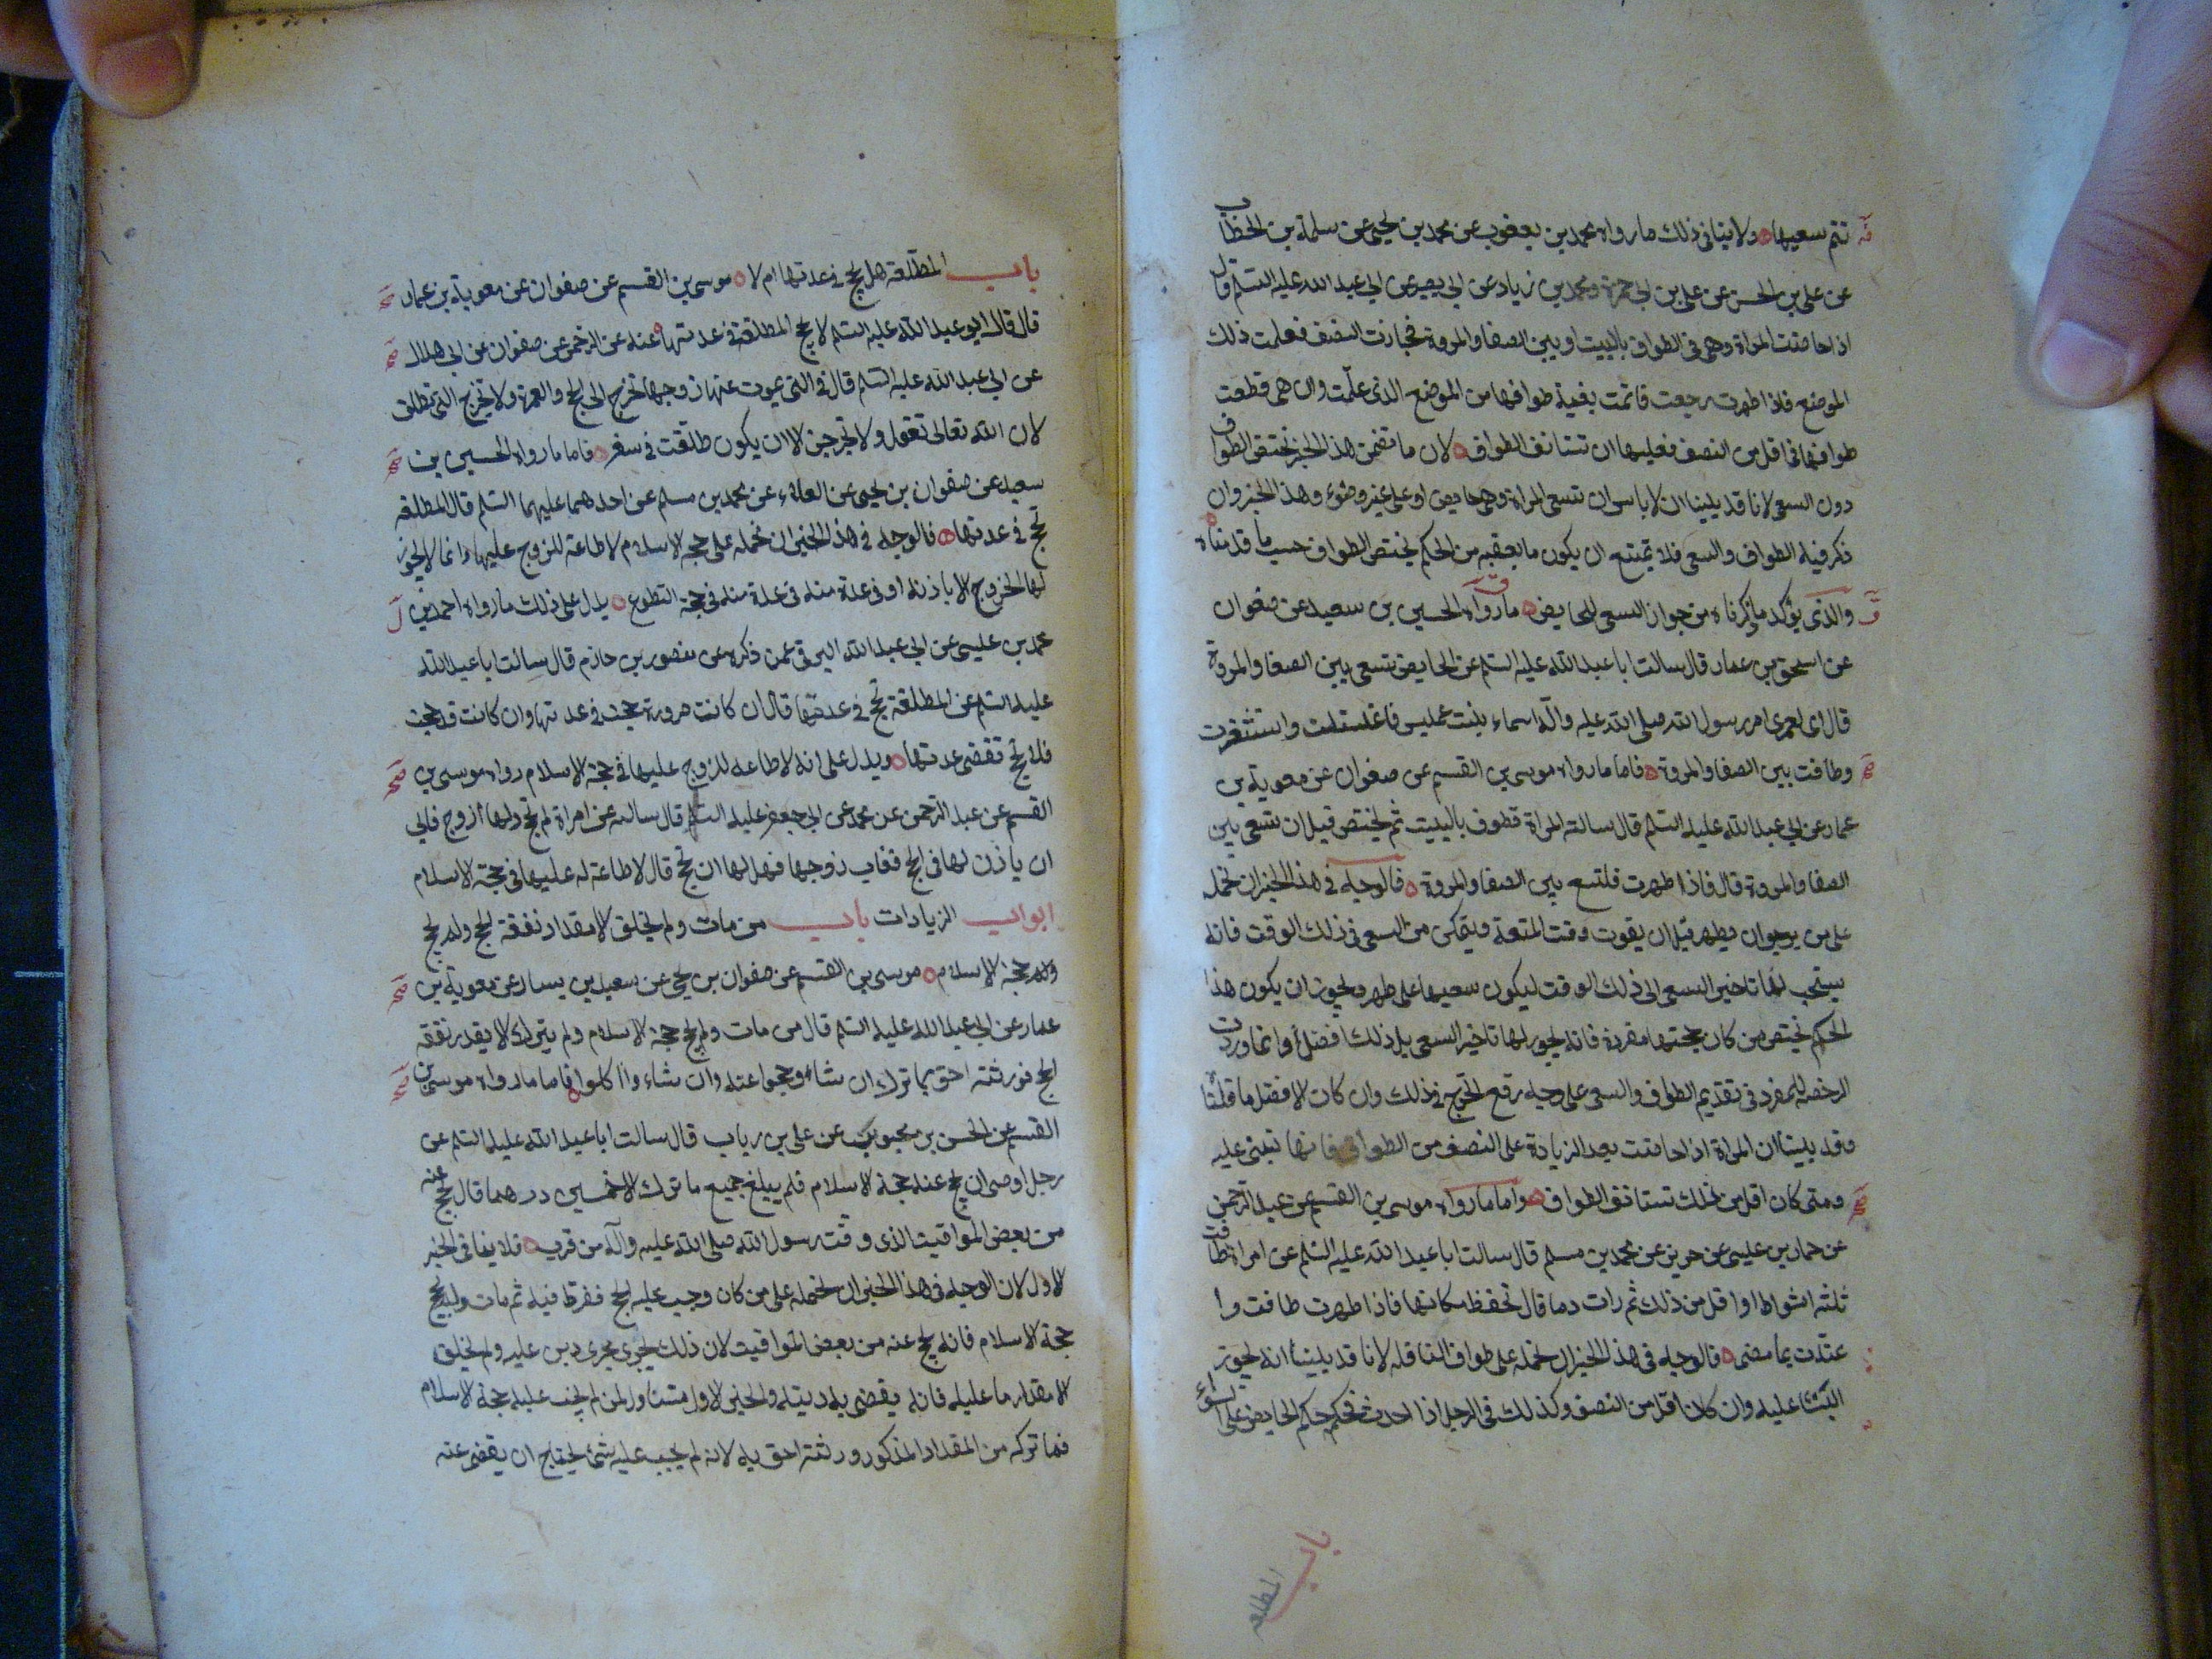 تتم سعيها ولا ينافي ذلك ما رواه محمد بن يعقوب عن محمد بن يحيى عن سلمة بن الخطاب
عن علي بن الحسن عن علي بن ابي حمزة ومحمد بن زياد عن ابي بصير عن ابي عبد الله عليه السلم قال
اذا حاضت المراة وهى فى الطواف بالبيت او بين الصفا والمروة فجازت النصف فعلمت ذلك
الموضع فاذا طهرت رجعت فاتمت بقية طوافها من الموضع الذى علمت وان هى قطعت
طوافها فى اقل من النصف فعليها ان تستانف الطواف لان ما تضمن هذا الخبر يختص الطواف
دون السعى لانا قد بينا ان لا باس ان تسعى المراة وهى حايض او على غير وضوء وهذا الخبر وان
ذكر فيه الطواف والسعى فلا يمتنع ان يكون ما يعقبه من الحكم يختص الطواف حسب ما قدمناه
والذى يؤكد ما ذكرناه من جواز السعى للحايض ما رواه الحسين بن سعيد عن صفوان
عن اسحق بن عمار قال سالت ابا عبد الله عليه السلم عن الحايض تسعى بين الصفا والمروة
قال اى لعمرى امر رسول الله صلى الله عليه واله اسماء بنت عميس فاغتسلت واستثفرت
وطافت بين الصفا والمروة فاما ما رواه موسى بن القسم عن صفوان عن معوية بن
عمار عن ابى عبد الله عليه السلم قال سالته المراة تطوف بالبيت ثم تحيض قبل ان تسعى بين
الصفا والمروة قال فاذا طهرت فلتسع بين الصفا والمروة فالوجه فى هذا الخبر ان نحمله
على من يرجو ان يطهر قبل ان يفوت وقت المتعة ويتمكن من السعى فى ذلك الوقت فانه
يستحب لها تاخير السعى الى ذلك الوقت ليكون سعيها على طهر ويجوز ان يكون هذا
الحكم يختص من كان حجتها مفردة فانه يجوز لها تاخير السعى بل ذلك افضل وانما وردت
الرخصه للمفرد فى تقديم الطواف والسعى على وجه رفع الحرج فى ذلك وان كان الافضل ما قلنا
وقد بينا ان المراة اذا حاضت بعد الزيادة على النصف من الطواف فانها تبنى عليه
ومتى كان اقل من ذلك تستانف الطواف واما ما رواه موسى بن القسم عن عبد الرحمن
عن حماد بن عيسى عن حريز عن محمد بن مسلم قال سالت ابا عبد الله عليه السلم عن امراة طافت
ثلثه اشواط او اقل من ذلك ثم رات دما قال تحفظ مكانها فاذا طهرت طافت وا
عتدت بما مضى فالوجه فى هذا الخبر ان نحمله على طواف النافله لانا قد بينا انه يجوز
البنا عليه وان كان اقل من النصف وكذلك فى الرجل اذا احدث فحكم حكم الحايض على السواء
باب المطلقه
باب المطلقة هل تحج فى عدتها ام لا موسى بن القسم عن صفوان عن معوية بن عمار
قال قال ابو عبد الله عليه السلم لا تحج المطلقة فى عدتها وعنه عن الرخمى عن صفوان عن ابى هلال
عن ابى عبد الله عليه السلم قال فى التى يموت عنها زوجها تخرج الى الحج والعمرة ولا تخرج التى تطلق
لان الله تعالى تقول ولا يخرجن الا ان يكون طلقت فى سفر فاما ما رواه الحسين بن
سعيد عن صفوان بن يحيى عن العلاء عن محمد بن مسلم عن احدهما عليهما السلم قال المطلقه
تحج فى عدتها فالوجه فى هذا الخبر ان نحمله على حجة الاسلام لا طاعة للزوج عليها وانما لا يجوز
لها الخروج الا باذنه او فى عدة منه فى عدة منه فى حجة التطوع يدل على ذلك ما رواه احمد بن
محمد بن عيسى عن ابى عبد الله البرقى عمن ذكره عن منصور بن حازم قال سالت ابا عبد الله
عليه السلم عن المطلقة تحج فى عدتها قال ان كانت صرورة حجت فى عدتها وان كانت قد حجت
فلا تحج تقضى عدتها ويدل على انه لا طاعه للزوج عليها فى حجة الاسلام رواه موسى بن
القسم عن عبد الرحمن عن محمد عن ابى جعفر عليه السلم قال سالته عن امراة لم تحج ولها زوج فابى
ان ياذن لها فى الحج فغاب زوجها فهل لها ان تحج قال لا طاعة له عليها فى حجة الاسلام
ابواب الزيادات باب من مات ولم يخلق الا مقدار نفقة الحج ولم يحج
حجة الاسلام موسى بن القسم عن صفوان بن يحيى عن سعيد بن يسار عن معوية بن
عمار عن ابى عبد الله عليه السلم قال من مات ولم يحج حجة الاسلام ولم يترك الا بقدر نفقة
الحج فورثته احق بما ترك ان شاءو حجوا عنه وان شاءوا اكلوا فاما ما رواه موسى بن
القسم عن الحسن بن محبوب عن على بن رياب قال سالت ابا عبد الله عليه السلم عن
رجل اوصى ان يحج عنه حجة الاسلام فلم يبلغ جميع ما ترك الا خمسين درهما قال يحج عنه
من بعض المواقيت الذى وقت رسول الله صلى الله عليه وآله من قرب فلا ينافى الخبر
الاول لان الوجه فى هذا الخبر ان نحمله على من كان وجب عليه الحج ففرط فيه ثم مات ولم يحج
حجة الاسلام فانه يحج عنه من بعض المواقيت لان ذلك يجرى مجرى دين عليه ولم يخلق
الا مقدار ما عليه فانه يقضى به دينه والخبر الاول متناول لمن لم يجب عليه حجة الاسلام
فما تركه من المقدار المذكور ورثته احق به لانه لم يجب عليه شئ يحتاج ان يقضى عنه